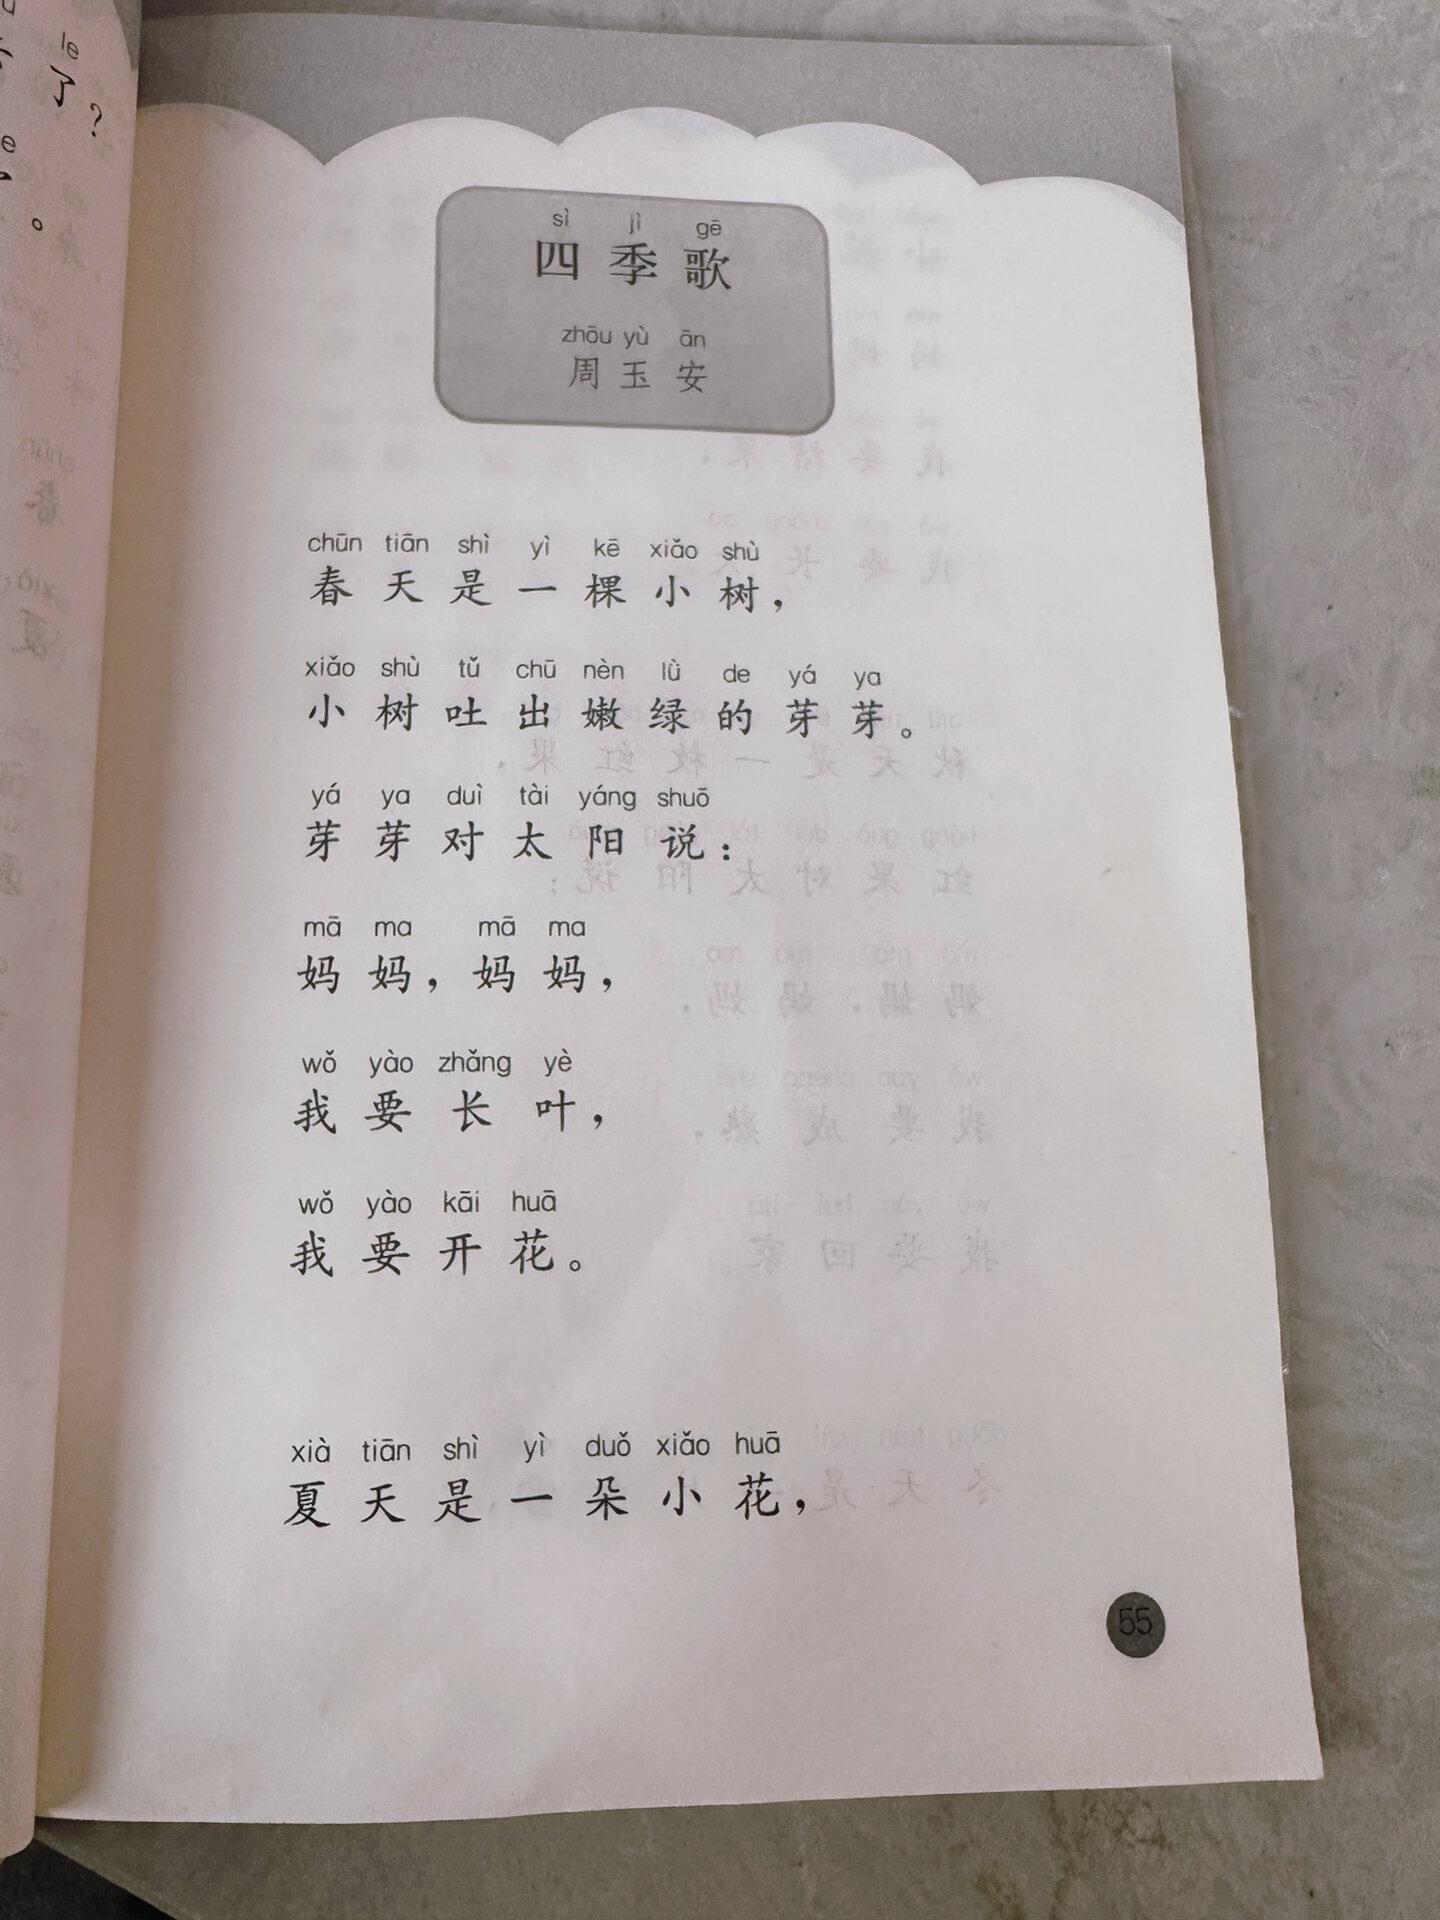 le
了?
。
sì jì gē
四季歌
zhōu yù ān
周玉安
chūn tiān shì yì kē xiǎo shù
春天是一棵小树，
xiǎo shù tǔ chū nèn lǜ de yá ya
小树吐出嫩绿的芽芽。
yá ya duì tài yáng shuō
芽芽对太阳说：
mā ma mā ma
妈妈，妈妈，
wǒ yào zhǎng yè
我要长叶，
wǒ yào kāi huā
我要开花。
xià tiān shì yì duǒ xiǎo huā
夏天是一朵小花，
55